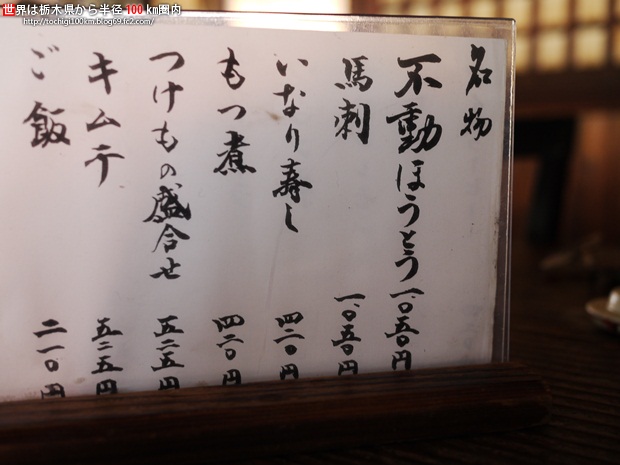 世界は栃木県から半径100km圏内
http://tochigi100km.blog69.fc2.com/
名物
不動ほうとう 一、〇五〇円
馬刺 一、〇五〇円
いなり寿し 四二〇円
もつ煮 四二〇円
つけもの盛合せ 五二五円
キムチ 五二五円
ご飯 二一〇円